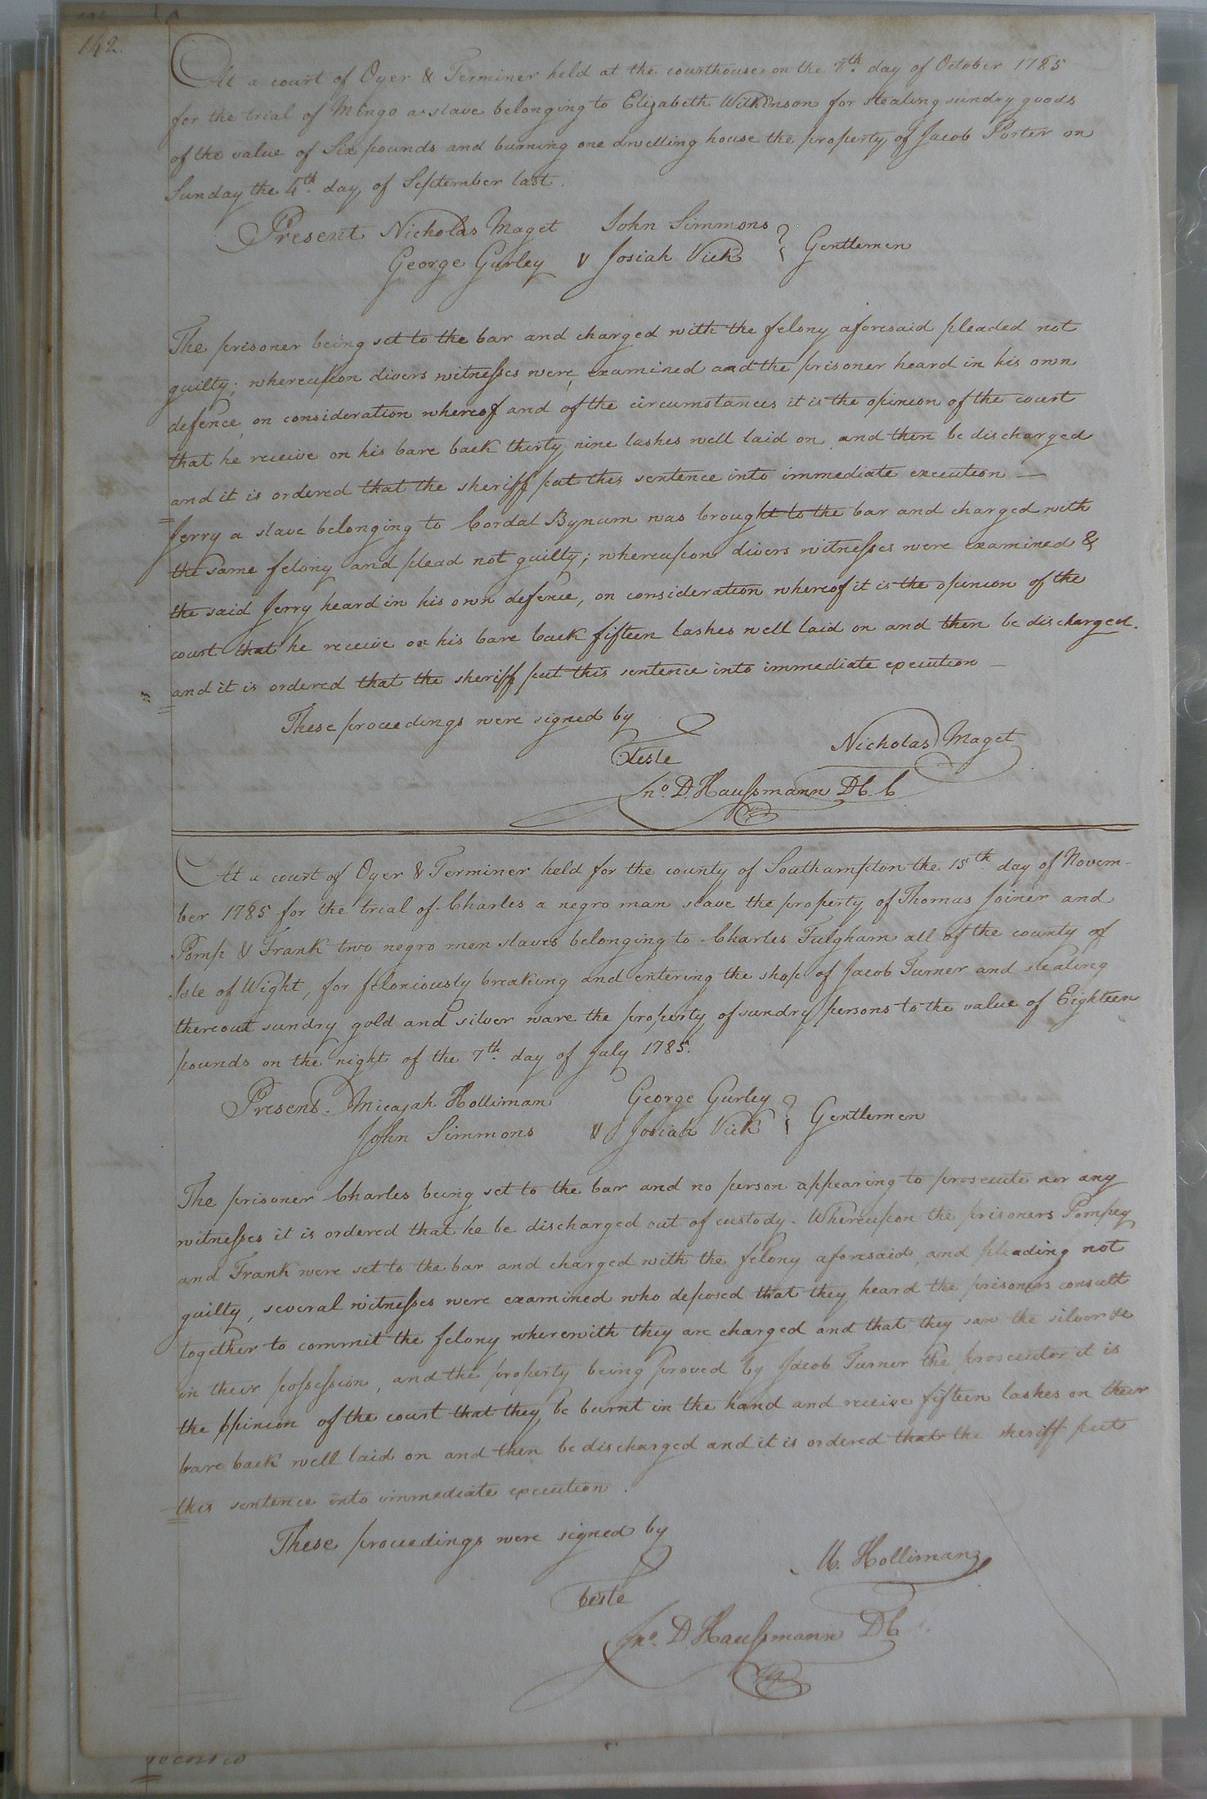 142.
At a court of Oyer & Terminer held at the courthouse on the 7th day of October 1785
for the trial of Mingo a slave belonging to Elizabeth Wilkinson for stealing sundry goods
of the value of Six pounds and burning one dwelling house the property of Jacob Porter on
Sunday the 4th day of September last.
Present Nicholas Maget John Simmons
George Gurley & Josiah Vick } Gentlemen
The prisoner being set to the bar and charged with the felony aforesaid pleaded not
guilty; whereupon divers witnesses were examined and the prisoner heard in his own
defence, on consideration whereof and of the circumstances it is the opinion of the court
that he receive on his bare back thirty nine lashes well laid on and then be discharged
and it is ordered that the sheriff put this sentence into immediate execution —
Jerry a slave belonging to Cordal Bynum was brought to the bar and charged with
the same felony and plead not guilty; whereupon divers witnesses were examined &
the said Jerry heard in his own defence, on consideration whereof it is the opinion of the
court that he receive on his bare back fifteen lashes well laid on and then be discharged.
and it is ordered that the sheriff put this sentence into immediate execution —
These proceedings were signed by
Nicholas Maget
Teste
Jno. D. Haussmann D.C.C
At a court of Oyer & Terminer held for the county of Southampton the 15th day of Novem-
ber 1785 for the trial of Charles a negro man slave the property of Thomas Joiner and
Pomp & Frank two negro men slaves belonging to Charles Fulgham all of the county of
Isle of Wight, for feloniously breaking and entering the shop of Jacob Turner and stealing
thereout sundry gold and silver ware the property of sundry persons to the value of Eighteen
pounds on the night of the 7th day of July 1785.
Present. Micajah Holliman George Gurley
John Simmons & Josiah Vick } Gentlemen
The prisoner Charles being set to the bar and no person appearing to prosecute nor any
witnesses it is ordered that he be discharged out of custody. Whereupon the prisoners Pompey
and Frank were set to the bar and charged with the felony aforesaid, and pleading not
guilty, several witnesses were examined who deposed that they heard the prisoners consult
together to commit the felony wherewith they are charged and that they saw the silver &c
in their possession, and the property being proved by Jacob Turner the prosecutor it is
the opinion of the court that they be burnt in the hand and receive fifteen lashes on their
bare back well laid on and then be discharged and it is ordered that the sheriff put
this sentence into immediate execution.
These proceedings were signed by
M. Holliman
Teste
Jno. D. Haussmann DC